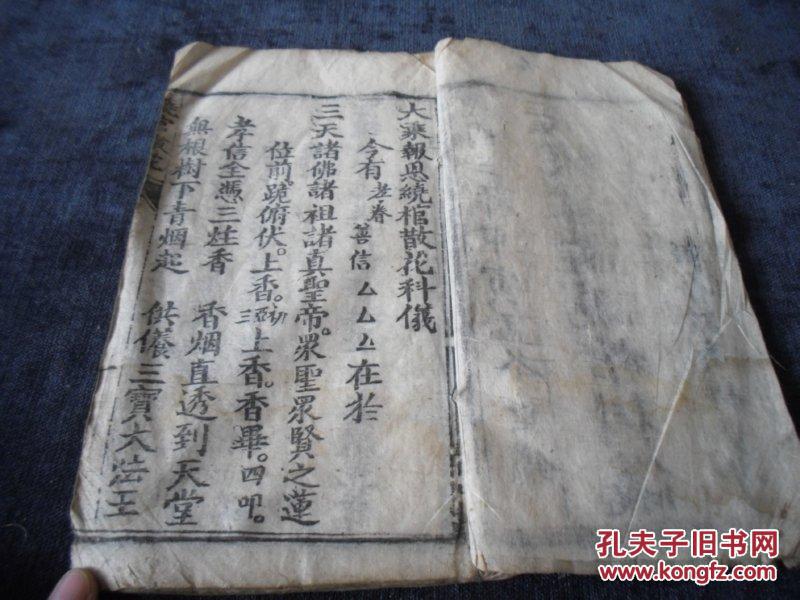 大乘報恩繞棺散花科儀
今有孝眷善信厶厶厶在於
三天諸佛諸祖諸真聖帝。眾聖眾賢之蓮
位前。跪俯伏。上香。初亞三上香。香畢。四叩。
孝信全憑三炷香 香烟直透到天堂
無根樹下青烟起 供養三寶大法王
孔夫子旧书网
www.kongfz.com